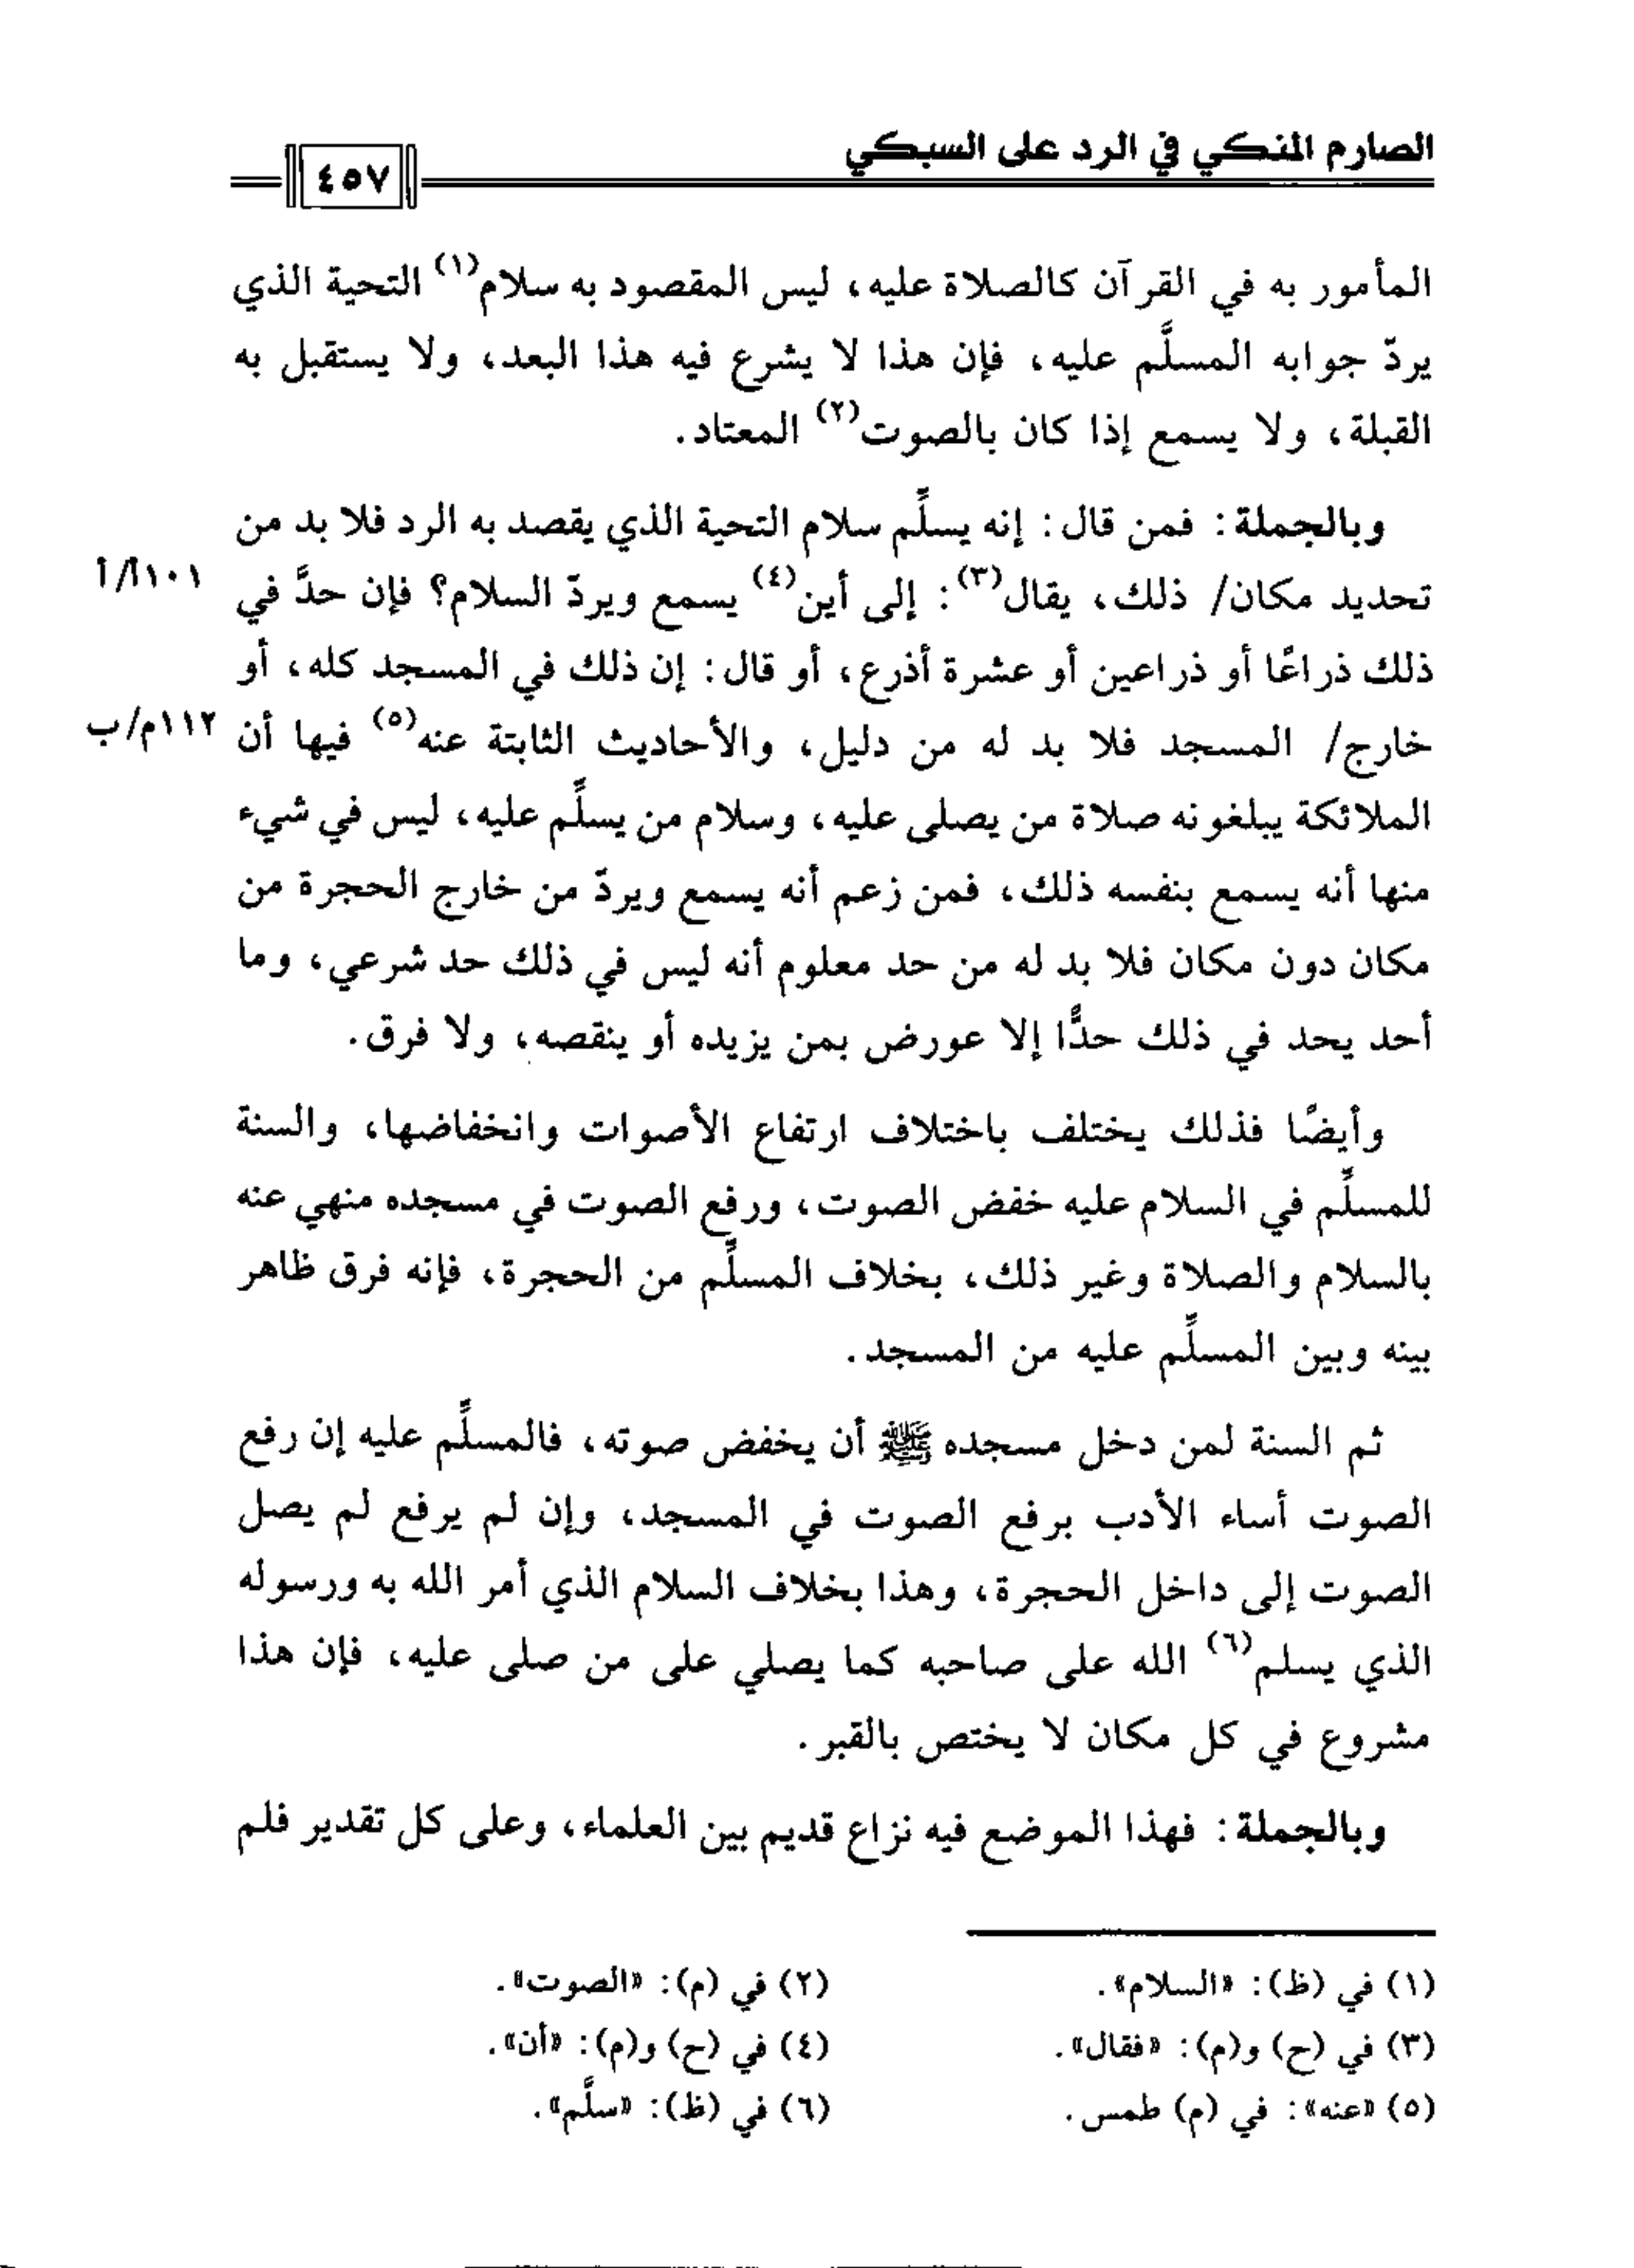 الصارم المنكي في الرد على السبكي
٤٥٧
المأمور به في القرآن كالصلاة عليه، ليس المقصود به سلام(١) التحية الذي
يردّ جوابه المسلَّم عليه، فإن هذا لا يشرع فيه هذا البعد، ولا يستقبل به
القبلة، ولا يسمع إذا كان بالصوت(٢) المعتاد.
وبالجملة: فمن قال: إنه يسلِّم سلام التحية الذي يقصد به الرد فلا بد من
تحديد مكان/ ذلك، يقال(٣): إلى أين(٤) يسمع ويردّ السلام؟ فإن حدَّ في
١٠١أ/أ
ذلك ذراعًا أو ذراعين أو عشرة أذرع، أو قال: إن ذلك في المسجد كله، أو
خارج/ المسجد فلا بد له من دليل، والأحاديث الثابتة عنه(٥) فيها أن
١١٢م/ب
الملائكة يبلغونه صلاة من يصلى عليه، وسلام من يسلِّم عليه، ليس في شيء
منها أنه يسمع بنفسه ذلك، فمن زعم أنه يسمع ويردّ من خارج الحجرة من
مكان دون مكان فلا بد له من حد معلوم أنه ليس في ذلك حد شرعي، وما
أحد يحد في ذلك حدًّا إلا عورض بمن يزيده أو ينقصه، ولا فرق.
وأيضًا فذلك يختلف باختلاف ارتفاع الأصوات وانخفاضها، والسنة
للمسلِّم في السلام عليه خفض الصوت، ورفع الصوت في مسجده منهي عنه
بالسلام والصلاة وغير ذلك، بخلاف المسلِّم من الحجرة، فإنه فرق ظاهر
بينه وبين المسلِّم عليه من المسجد.
ثم السنة لمن دخل مسجده ﷺ أن يخفض صوته، فالمسلِّم عليه إن رفع
الصوت أساء الأدب برفع الصوت في المسجد، وإن لم يرفع لم يصل
الصوت إلى داخل الحجرة، وهذا بخلاف السلام الذي أمر الله به ورسوله
الذي يسلم(٦) الله على صاحبه كما يصلي على من صلى عليه، فإن هذا
مشروع في كل مكان لا يختص بالقبر.
وبالجملة: فهذا الموضع فيه نزاع قديم بين العلماء، وعلى كل تقدير فلم
(١) في (ظ): «السلام».
(٢) في (م): «الصوت».
(٣) في (ح) و(م): «فقال».
(٤) في (ح) و(م): «أن».
(٥) «عنه»: في (م) طمس.
(٦) في (ظ): «سلَّم».